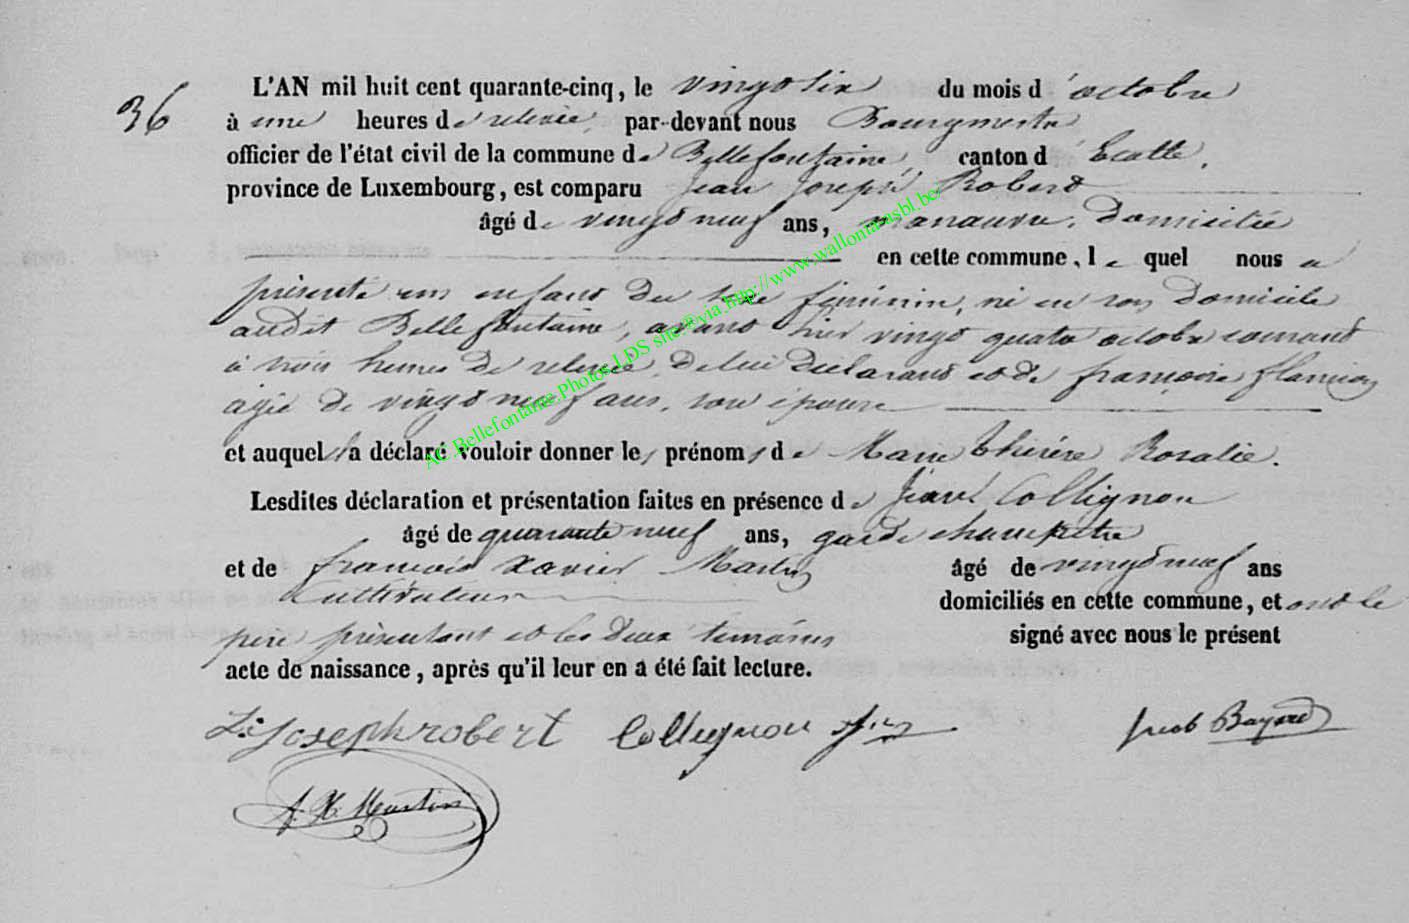 36
L'AN mil huit cent quarante-cinq, le vingt six du mois d'octobre
à une heures de relevée, par-devant nous Bourgmestre
officier de l'état civil de la commune de Bellefontaine canton d'Etalle,
province de Luxembourg, est comparu Jean Joseph Robert
âgé de vingt neuf ans, manœuvre, domicilié
en cette commune, lequel nous a
présenté un enfant du sexe féminin, né en son domicile
audit Bellefontaine, avant hier vingt quatre octobre courant
à trois heures de relevée, de lui déclarant et de françoise
agée de vingt neuf ans, son épouse
et auquel il a déclaré vouloir donner les prénoms de Marie thérèse Rosalie.
Lesdites déclaration et présentation faites en présence de Jean Collignon
âgé de quarante neuf ans, garde champêtre
et de françois Xavier Martin âgé de vingt neuf ans
Cultivateur domiciliés en cette commune, et ont le
père présentant et les deux témoins signé avec nous le présent
acte de naissance, après qu'il leur en a été fait lecture.
Joseph robert Collignon Jacob Bayard
f. X. Martin
AC.Bellefontaine.Photos LDS site®via.http://www.wallonia-asbl.be